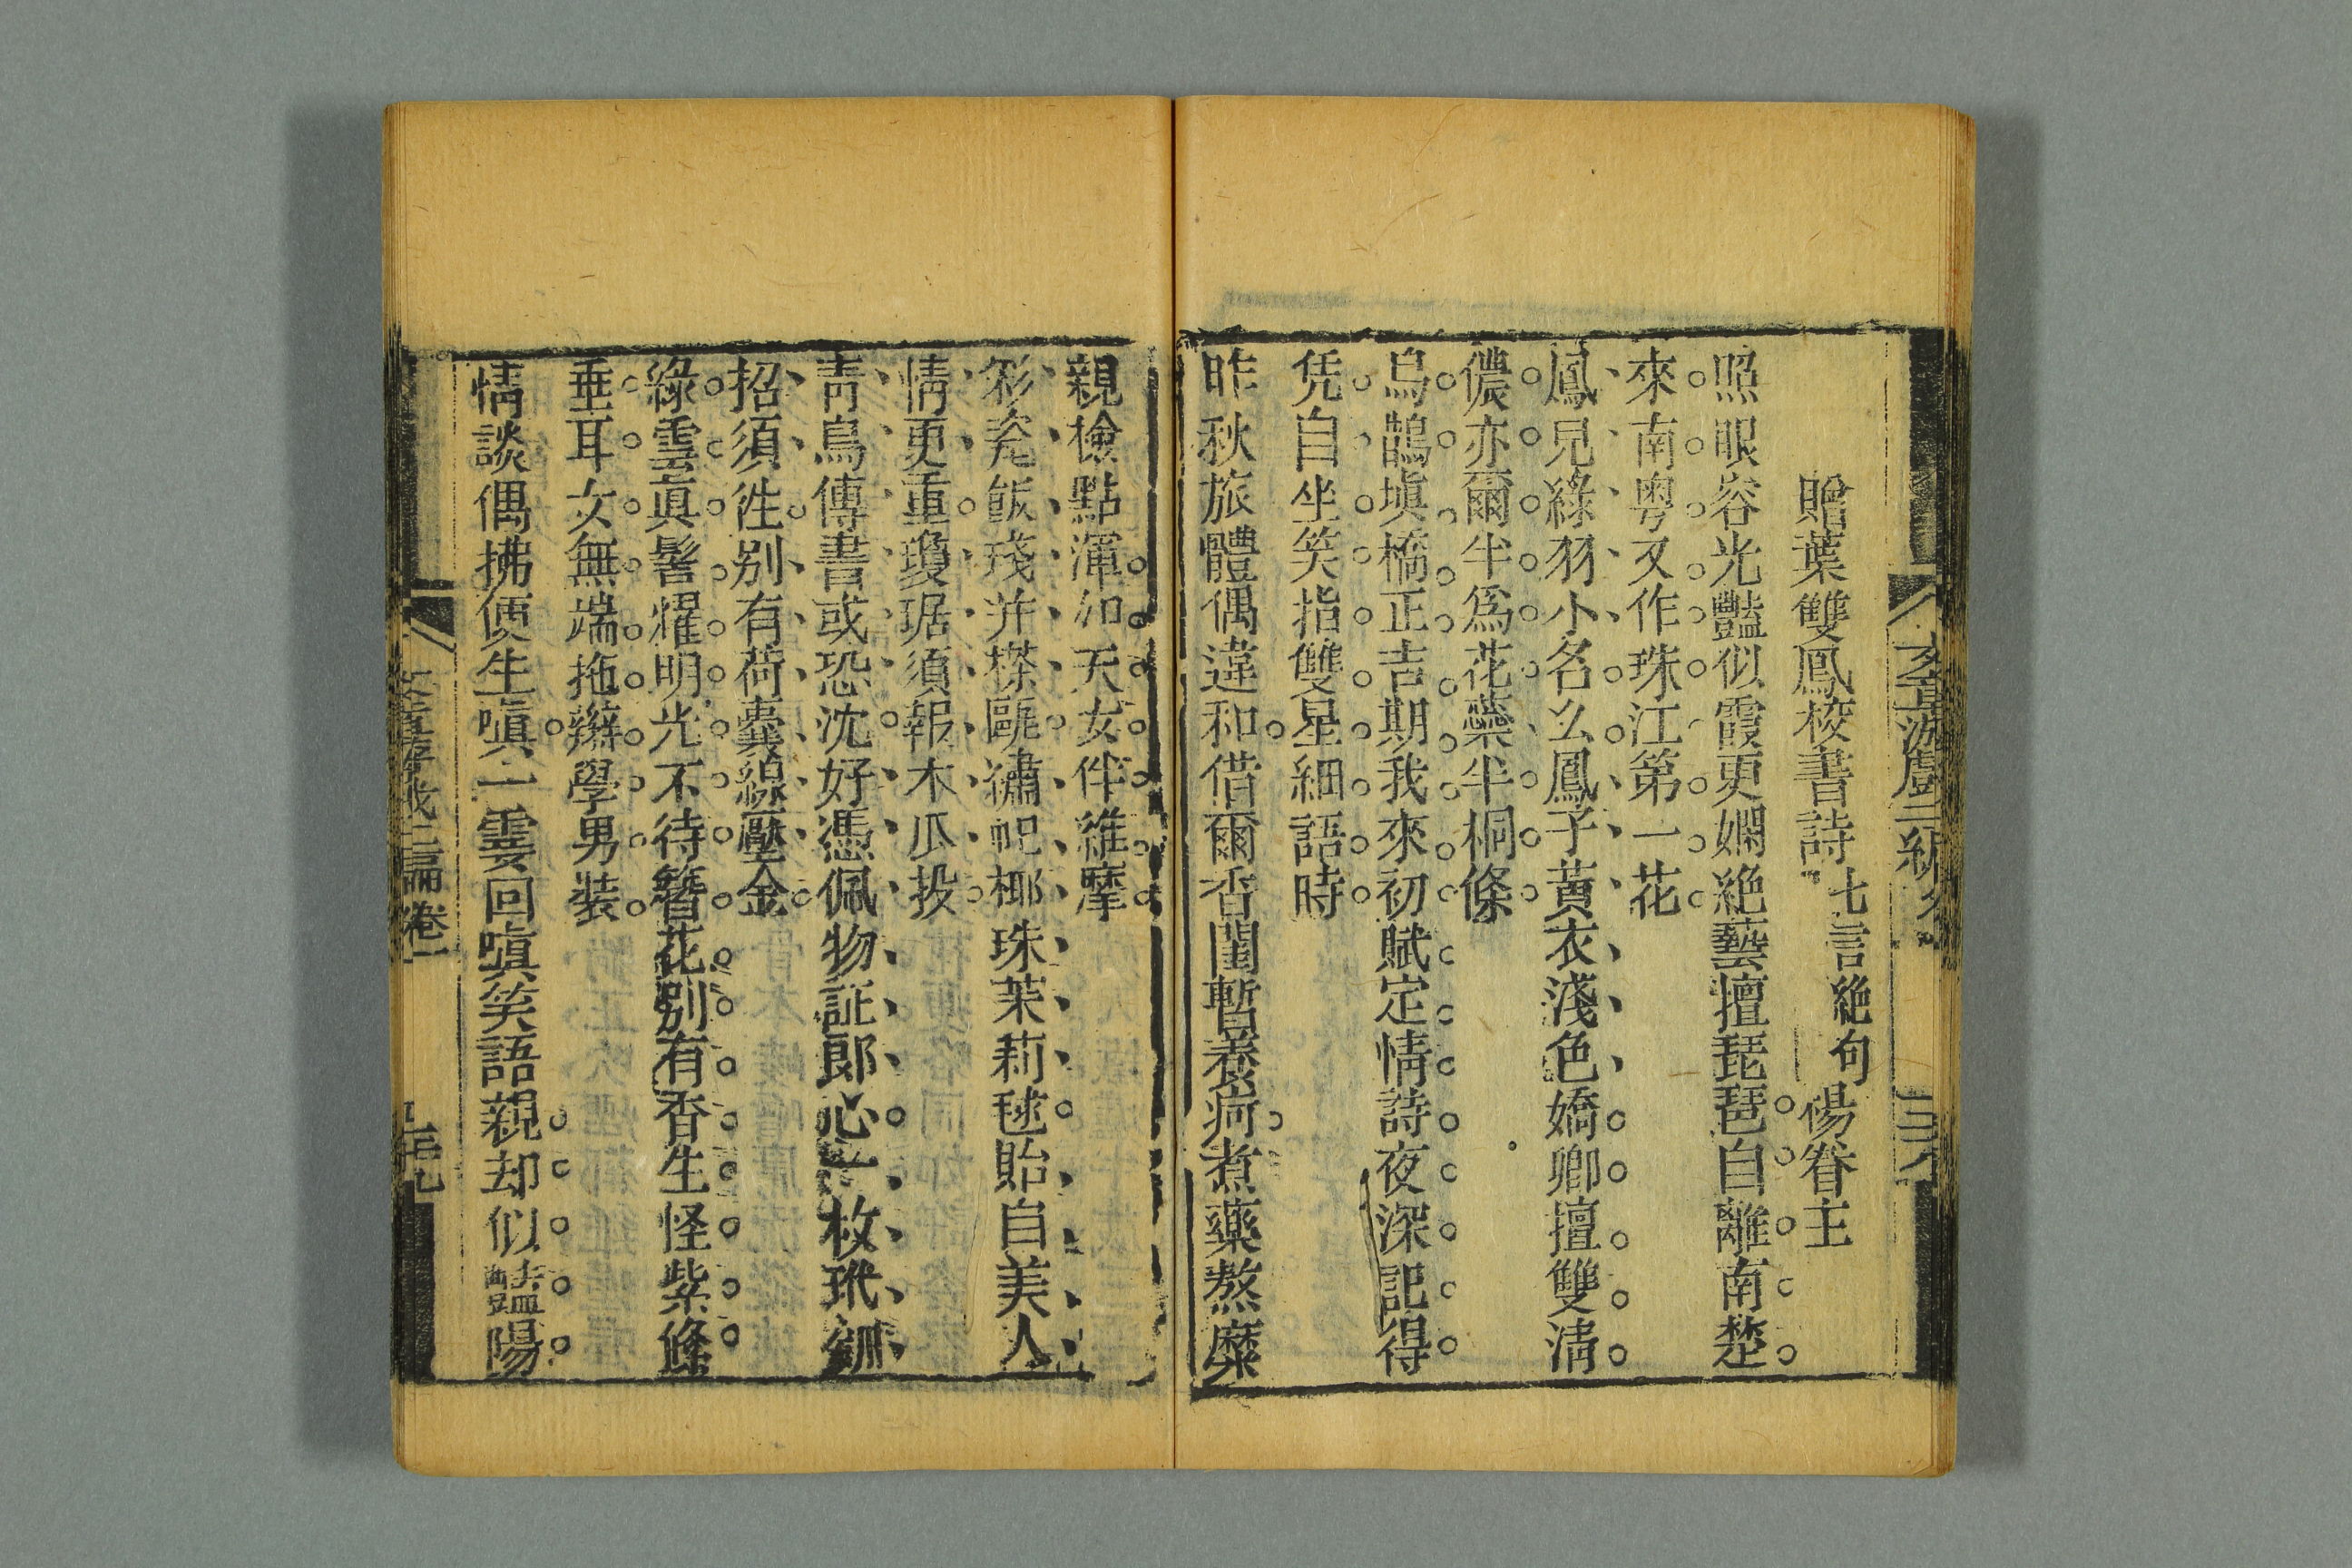 贈葉雙鳳校書詩 七言絶句 傷眷主
照眼容光豔似霞更嫻絶藝擅琵琶自離南楚
來南粤又作珠江第一花
鳳兒綠羽小名么鳳子黃衣淺色嬌卿擅雙淸
儂亦爾半爲花藥半桐條
烏鵲塡橋正吉期我來初賦定情詩夜深記得
凭自坐笑指雙星細語時
昨秋旅體偶違和借爾香閨暫養疴煮藥熬糜
親檢點渾如天女伴維摩
彩瓷飯琖并櫾甌繡帊椰珠茉莉毬貽自美人
情更重瓊琚須報木瓜投
靑鳥傳書或恐沈好憑佩物証郞心一枚玳釧
招須徃别有荷囊線壓金
綠雲眞髻耀明光不待簪花别有香生怪紫絛
垂耳女無端拖辮學男裝
情談偶拂便生嗔一霎回嗔笑語親却似豔陽
卷一